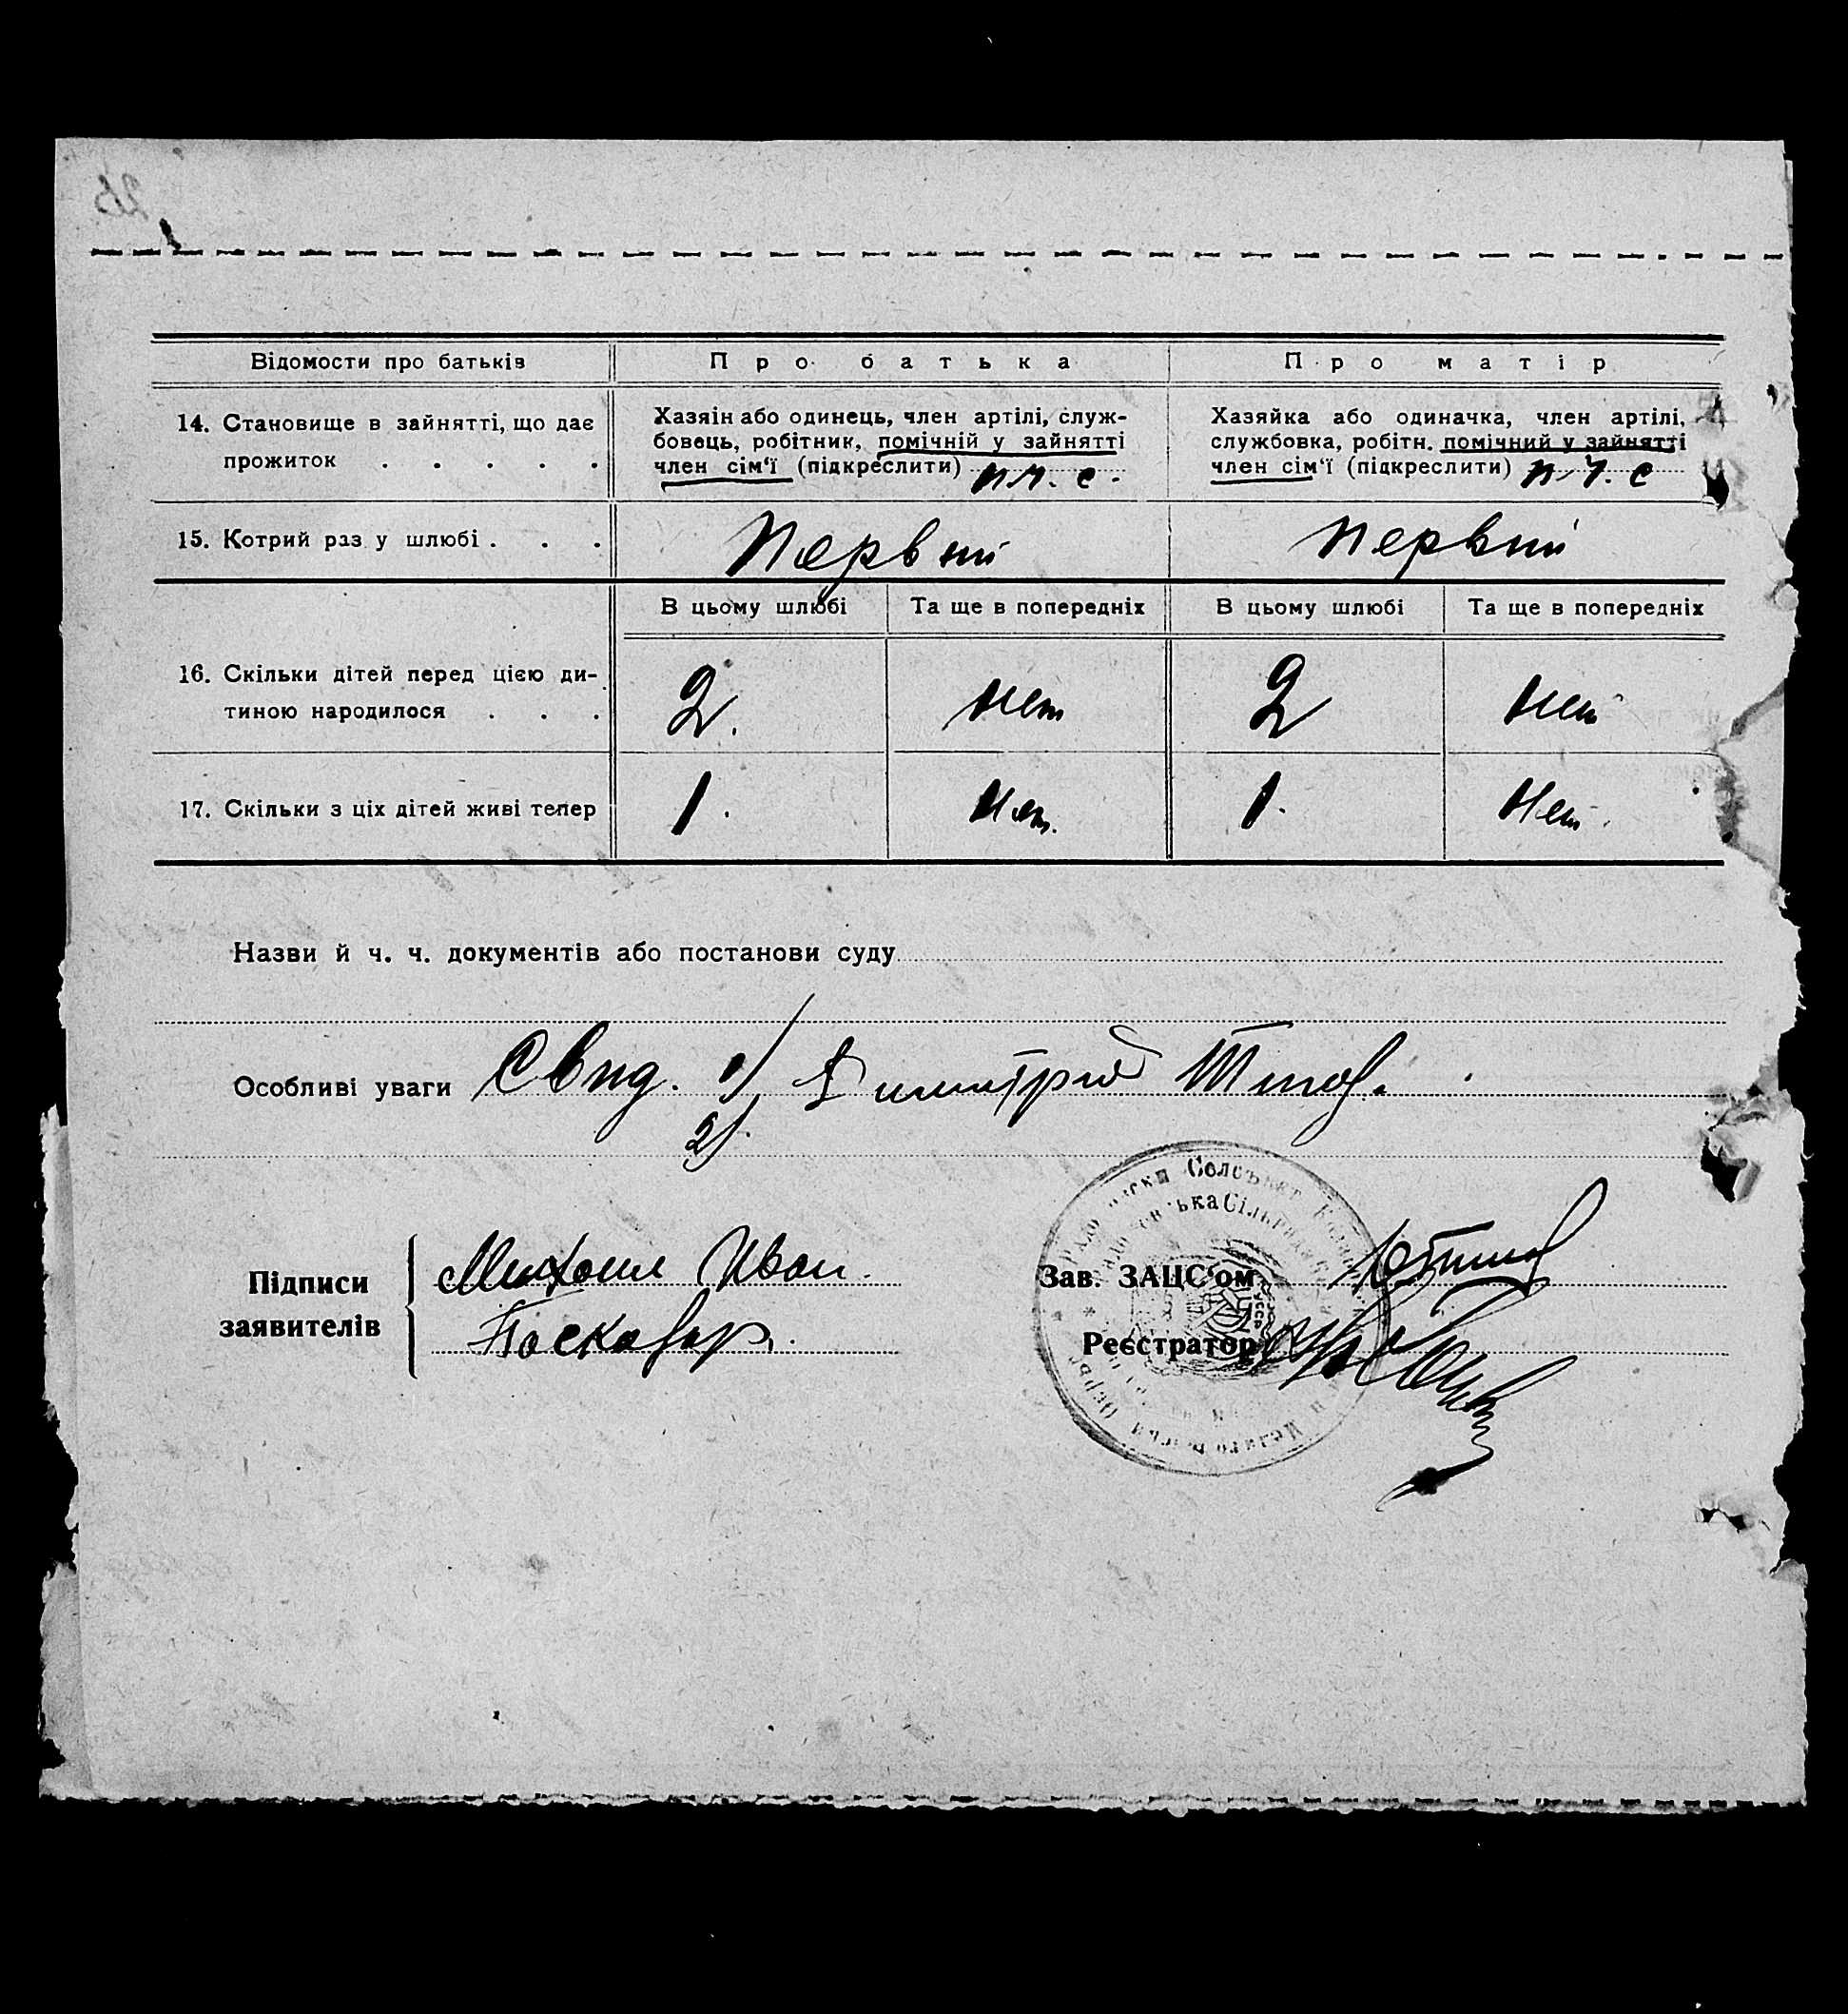 26
Відомости про батьків
Про батька
Про матір
14. Становище в зайнятті, що дає
прожиток . . . . .
Хазяін або одинець, член артілі, служ-
бовець, робітник, помічній у зайнятті
член сім‘ї (підкреслити) п. ч. с.
Хазяйка або одиначка, член артілі,
службовка, робітн. помічний у зайнятті
член сім‘ї (підкреслити) п. ч. с
15. Котрий раз у шлюбі . . .
Первий
Первий
В цьому шлюбі
Та ще в попередніх
В цьому шлюбі
Та ще в попередніх
16. Скільки дітей перед цією ди-
тиною народилося . . .
2.
нет
2
нет
17. Скільки з ціх дітей живі тепер
1.
Нет.
1.
Нет.
Назви й ч. ч. документів або постанови суду
Особливі уваги Свид. 1/ Димитрий
2/.
Підписи
заявителів
Михаил Иван.
Зав. ЗАЦС‘ом
Реєстратор